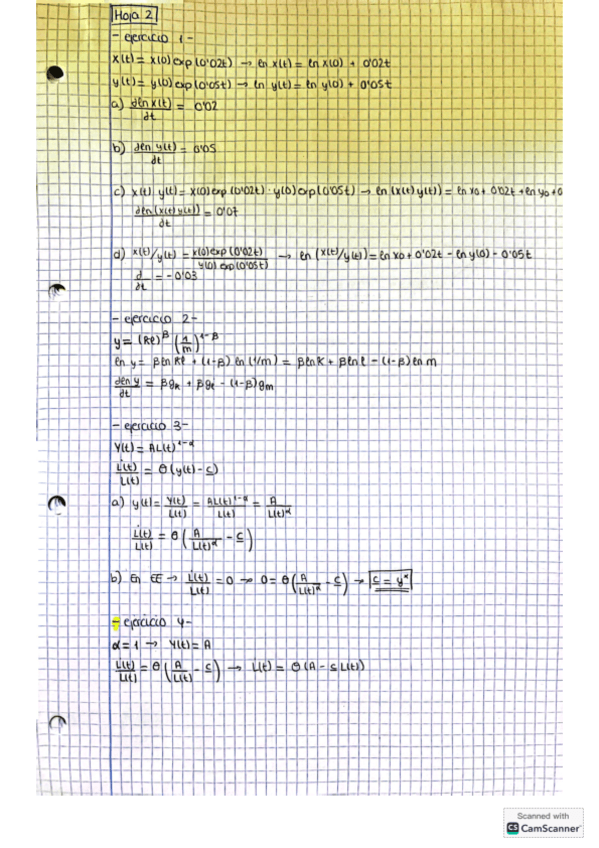 Hoja 2
- ejercicio 1 -
x(t) = x(0) exp(0'02t) → ln x(t) = ln x(0) + 0'02t
y(t) = y(0) exp(0'05t) → ln y(t) = ln y(0) + 0'05t
a) dln x(t)/dt = 0'02
b) dln y(t)/dt = 0'05
c) x(t) y(t) = x(0) exp(0'02t) · y(0) exp(0'05t) → ln (x(t) y(t)) = ln x0 + 0'02t + ln y0 + 0
dln(x(t) y(t))/dt = 0'07
d) x(t)/y(t) = x(0) exp(0'02t)/y(0) exp(0'05t) → ln (x(t)/y(t)) = ln x0 + 0'02t - ln y(0) - 0'05t
d/dt = -0'03
- ejercicio 2 -
y = (kl)^β (1/m)^1-β
ln y = β ln kl + (1-β) ln (1/m) = β ln k + β ln l - (1-β) ln m
dln y/dt = β gk + β gl - (1-β) gm
- ejercicio 3 -
Y(t) = AL(t)^1-α
L̇(t)/L(t) = θ (y(t) - c)
a) y(t) = Y(t)/L(t) = AL(t)^1-α/L(t) = A/L(t)^α
L̇(t)/L(t) = θ (A/L(t)^α - c)
b) En EE → L̇(t)/L(t) = 0 → 0 = θ (A/L(t)^α - c) → c = y*
- ejercicio 4 -
α = 1 → Y(t) = A
L̇(t)/L(t) = θ (A/L(t) - c) → L̇(t) = θ (A - c L(t))
Scanned with
CS CamScanner